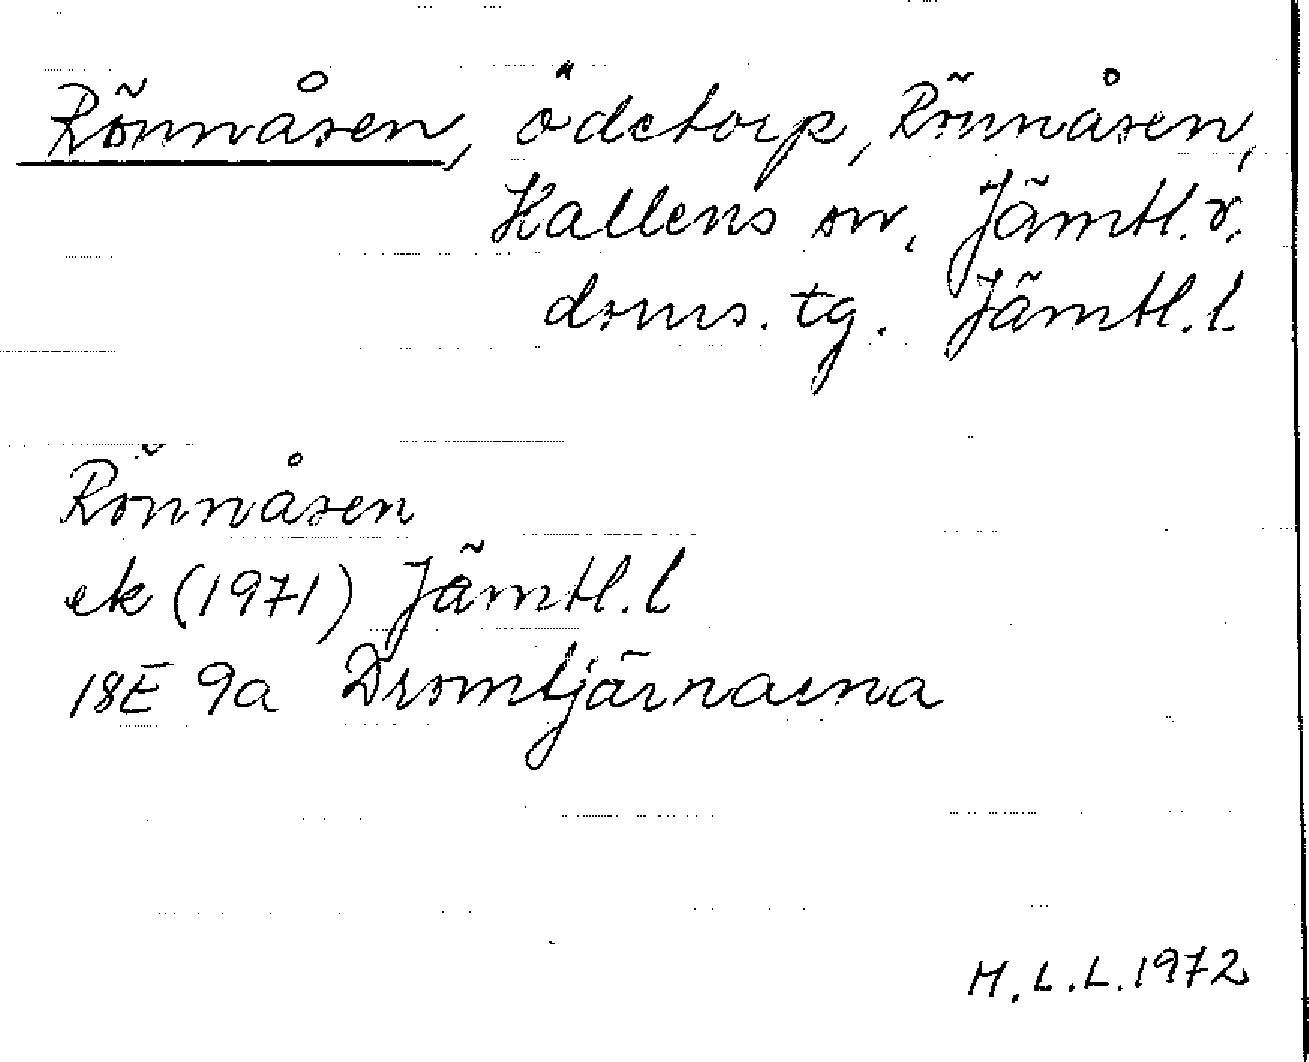 Rönnåsen, ödetorp, Rönnåsen,
Hallens sn, Jämtl. v.
doms. tg. Jämtl. l.
Rönnåsen
ek (1971) Jämtl. l
18E 9a Dromtjärnarna
H.L.L. 1972